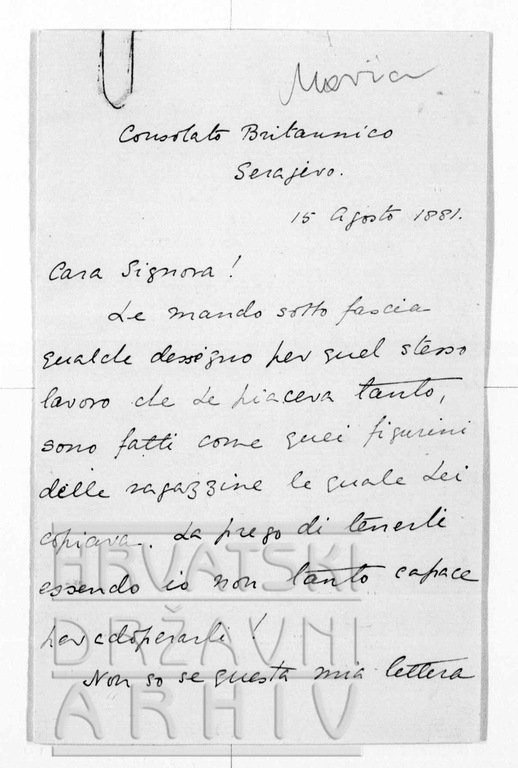 Maria
Consolato Britannico
Serajevo.
15 Agosto 1881.
Cara Signora!
Le mando sotto fascia
qualche dessegno per quel stesso
lavoro che Le piaceva tanto,
sono fatti come quei figurini
delle ragazzine le quale Lei
copiava. La prego di tenerli
essendo io non tanto capace
per adoperarli!
Non so se questa mia lettera
HRVATSKI
DRŽAVNI
ARHIV